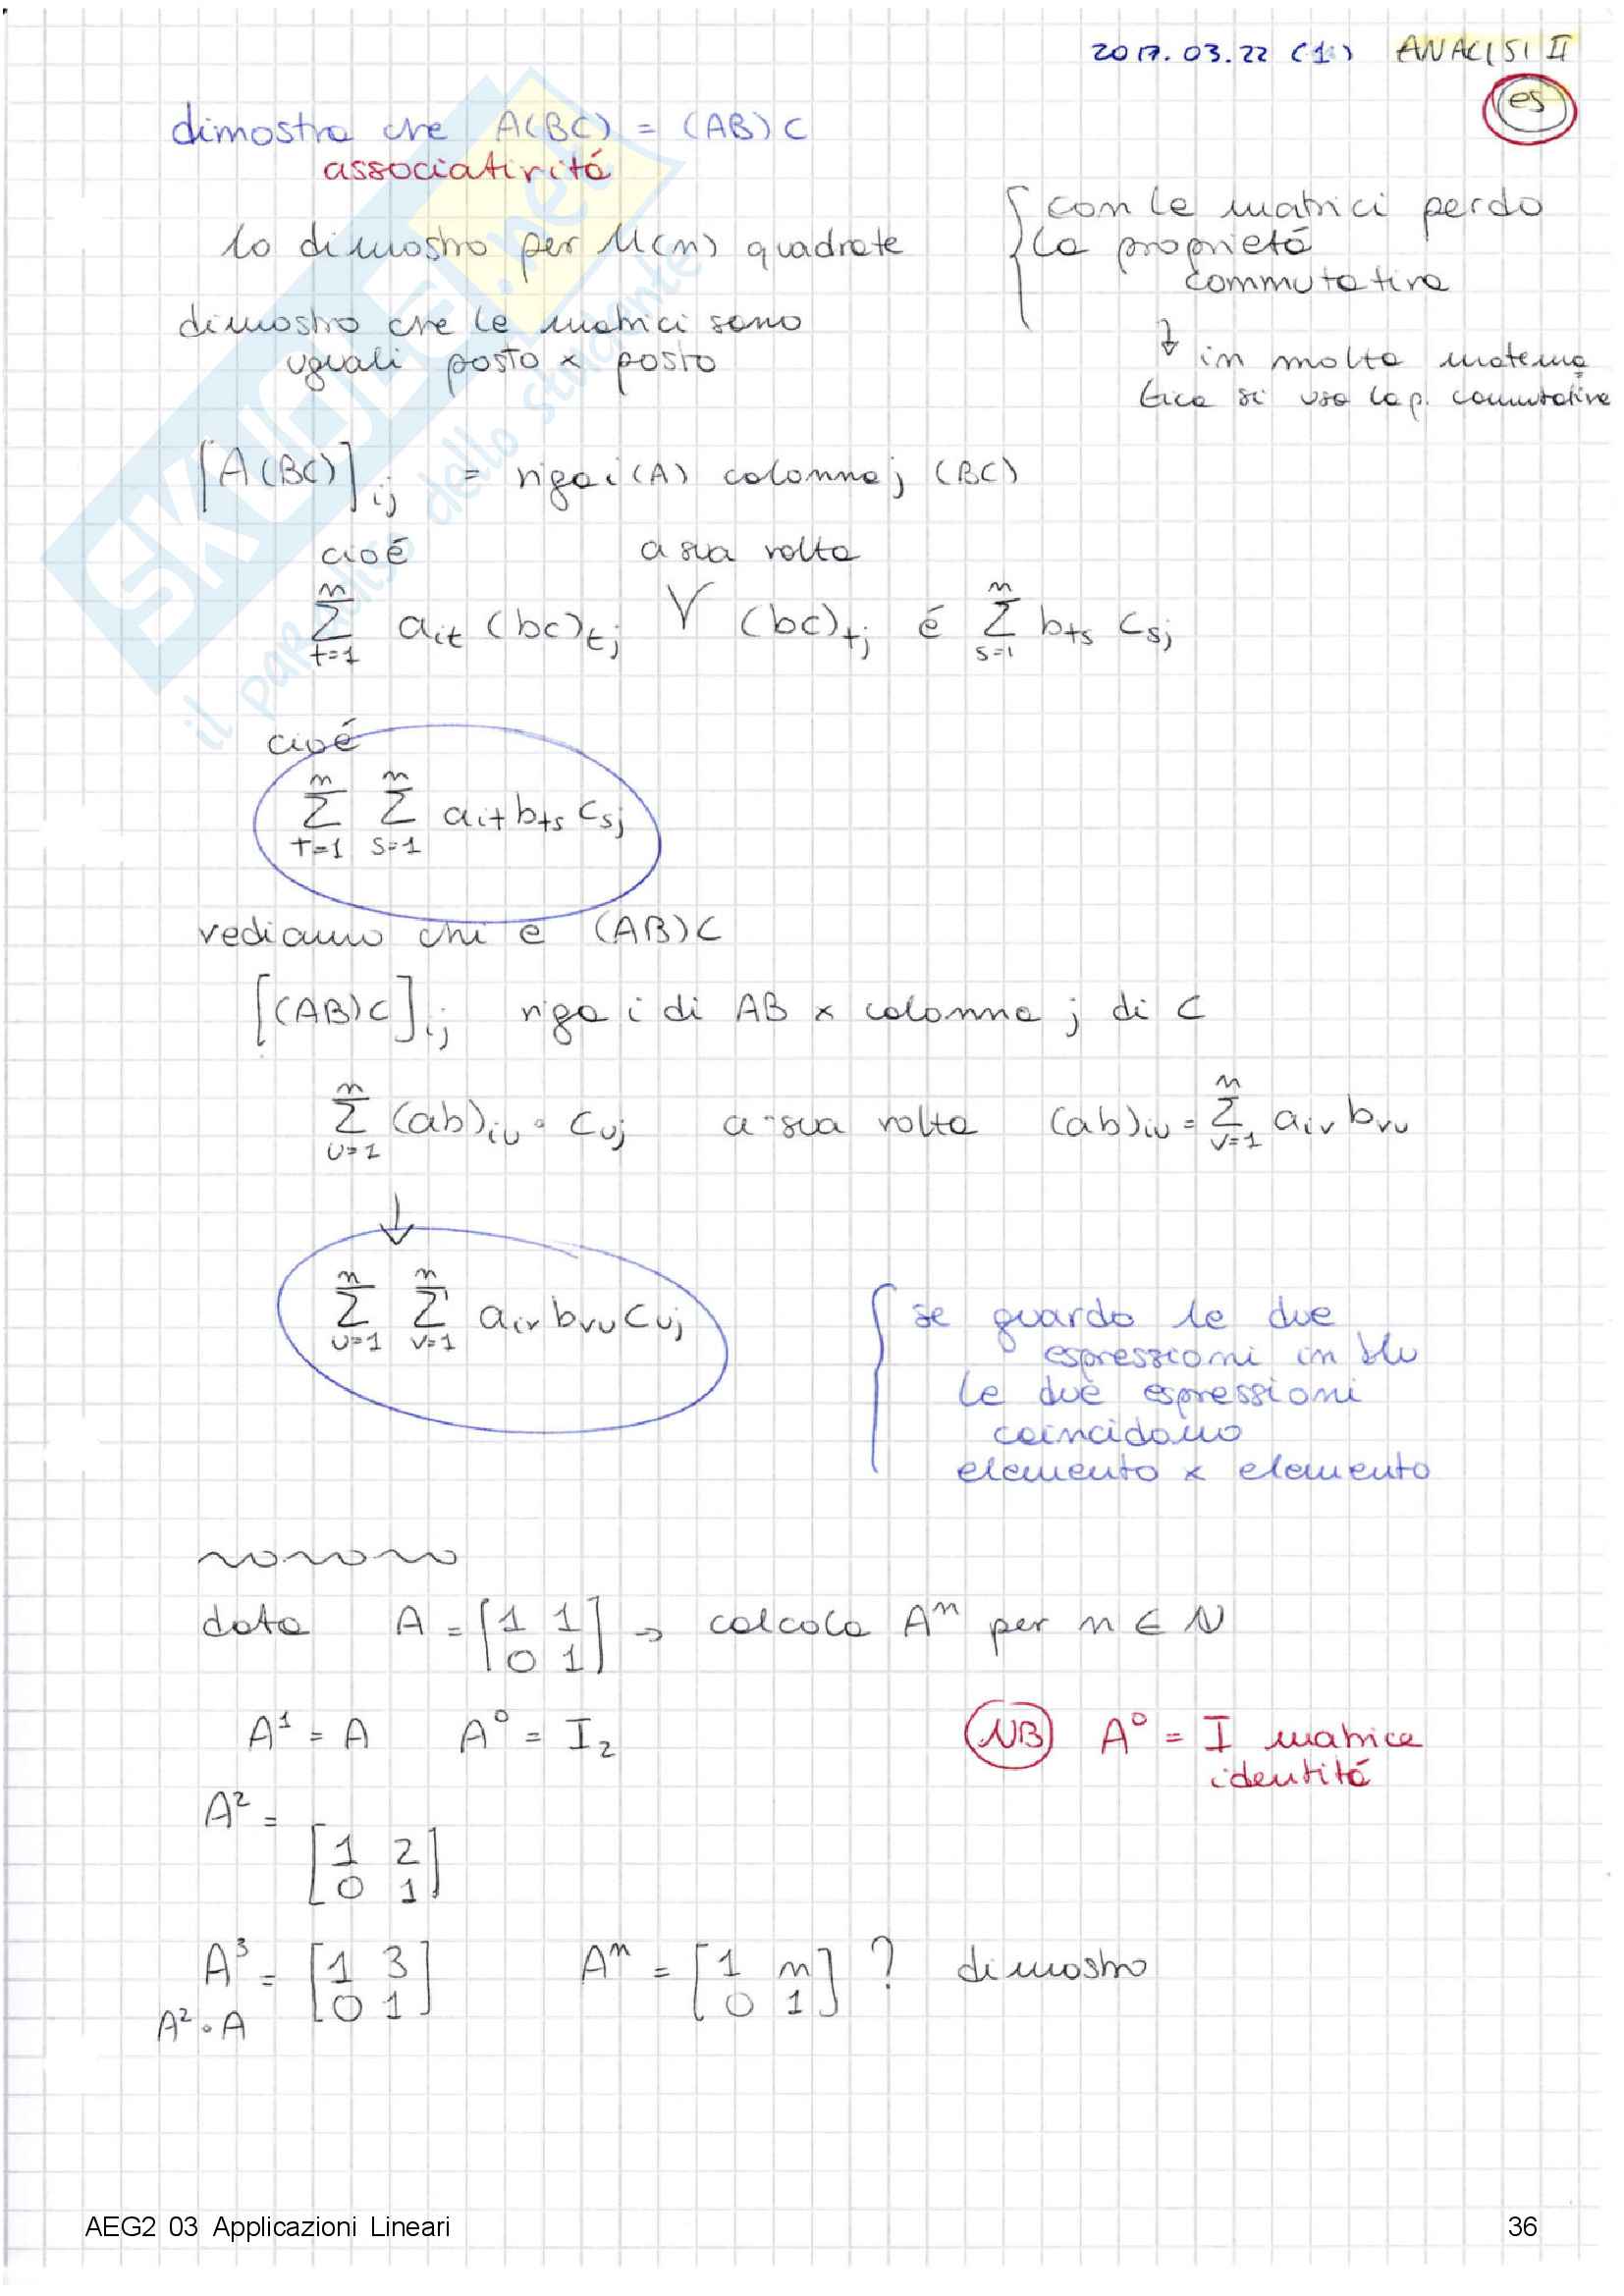 2017.03.22 (1) ANALISI II
es
dimostra che A(BC) = (AB)C
associatività
lo dimostro per M(n) quadrate
{ con le matrici perdo
la proprietà
commutativa
↓ in molta matema
tica si usa la p. commutativa
dimostro che le matrici sono
uguali posto x posto
[A(BC)]ij = riga i (A) colonna j (BC)
cioé a sua volta
n∑t=1 ait (bc)tj (bc)tj é n∑s=1 bts csj
cioé
n∑t=1 n∑s=1 ait bts csj
vediamo chi e (AB)C
[(AB)C]ij riga i di AB x colonna j di C
n∑u=1 (ab)iu · cuj a sua volta (ab)iu = n∑v=1 aiv bvu
↓
n∑u=1 n∑v=1 aiv bvu cuj
{ se guardo le due
espressioni in blu
le due espressioni
coincidono
elemento x elemento
data A = [1 1; 0 1] → calcola Aⁿ per n ∈ N
A¹ = A A⁰ = I₂
NB A⁰ = I matrice
identitá
A² = [1 2; 0 1]
A³ = [1 3; 0 1] Aⁿ = [1 n; 0 1] ? dimostro
A² · A
AEG2 03 Applicazioni Lineari 36
SKUOLA.net
il paradiso dello studente